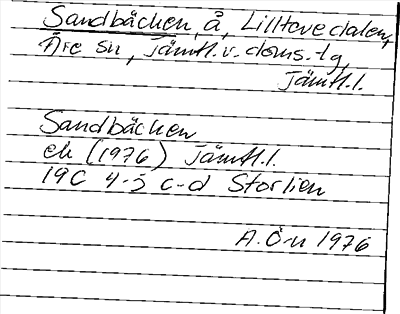 Sandbäcken, å, Lilltevedalen,
Åre sn, Jämtl.v. doms.-lg,
Jämtl.l.
Sandbäcken
ek (1976) Jämtl.l.
19C 4-5 c-d Storlien
A. Ö-n 1976